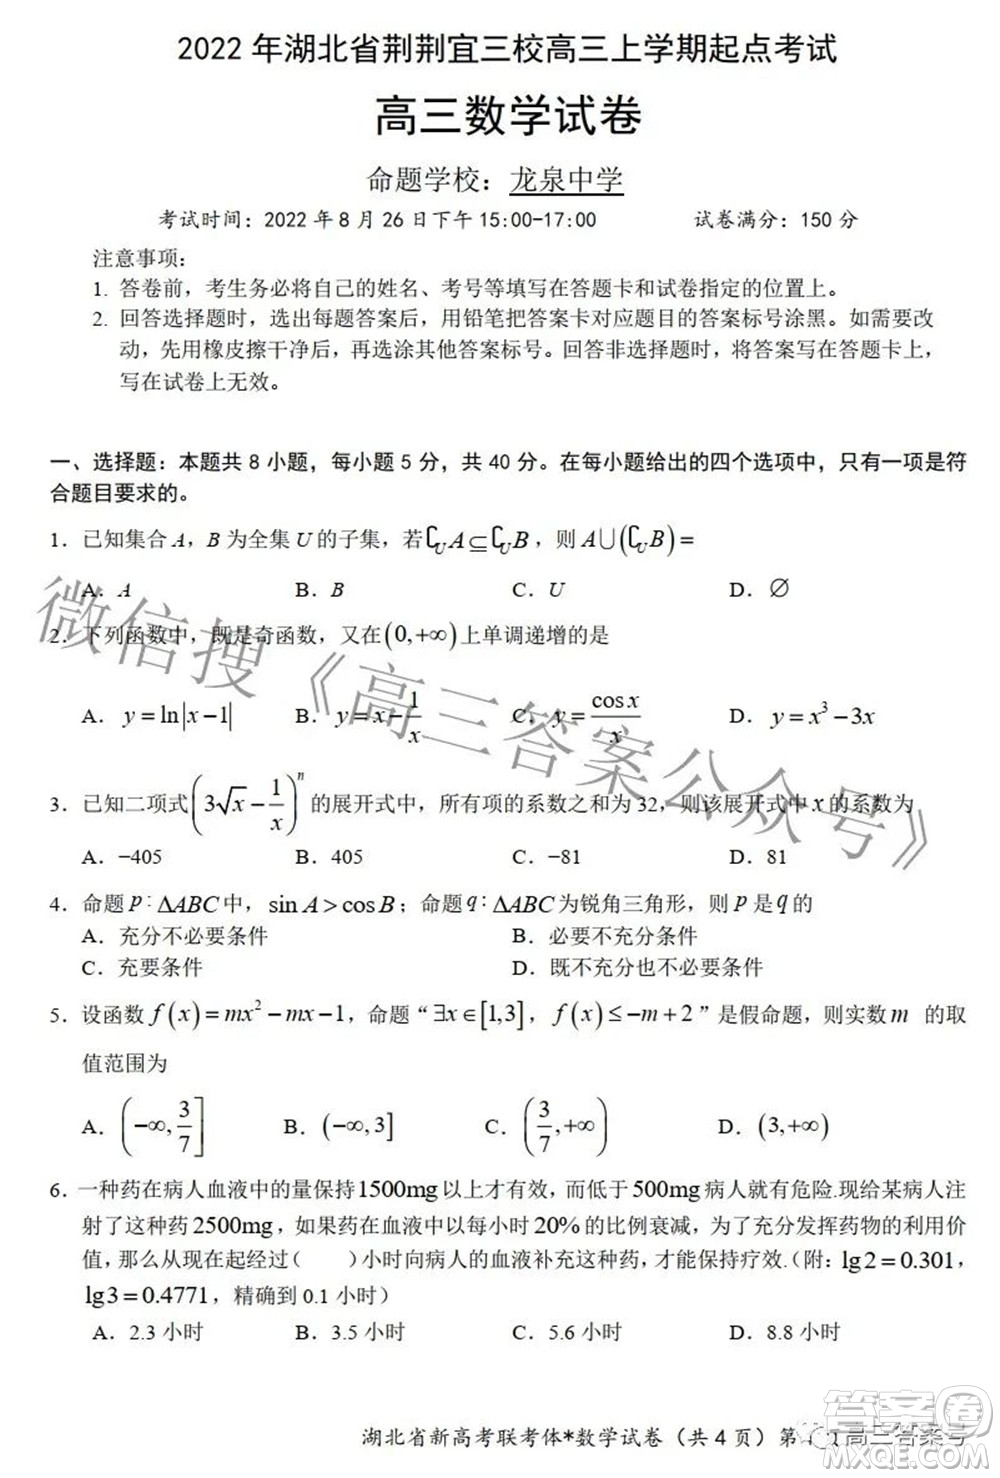 2022 年湖北省荆荆宜三校高三上学期起点考试
高三数学试卷
命题学校：龙泉中学
考试时间：2022 年 8 月 26 日下午 15:00-17:00 试卷满分：150 分
注意事项：
1. 答卷前，考生务必将自己的姓名、考号等填写在答题卡和试卷指定的位置上。
2. 回答选择题时，选出每题答案后，用铅笔把答案卡对应题目的答案标号涂黑。如需改
动，先用橡皮擦干净后，再选涂其他答案标号。回答非选择题时，将答案写在答题卡上，
写在试卷上无效。
一、选择题：本题共 8 小题，每小题 5 分，共 40 分。在每小题给出的四个选项中，只有一项是符
合题目要求的。
1．已知集合 A，B 为全集 U 的子集，若 ∁_U A ⊆ ∁_U B ，则 A∪(∁_U B) =
A．A B．B C．U D．∅
2．下列函数中，既是奇函数，又在 (0,+∞) 上单调递增的是
A．y = ln|x−1| B．y = x − 1/x C．y = cos x / x D．y = x³ − 3x
3．已知二项式 (3√x − 1/x)ⁿ 的展开式中，所有项的系数之和为 32，则该展开式中 x 的系数为
A．−405 B．405 C．−81 D．81
4．命题 p：ΔABC 中，sin A > cos B；命题 q：ΔABC 为锐角三角形，则 p 是 q 的
A．充分不必要条件 B．必要不充分条件
C．充要条件 D．既不充分也不必要条件
5．设函数 f(x) = mx² − mx − 1，命题“∃x∈[1,3]，f(x) ≤ −m + 2”是假命题，则实数 m 的取
值范围为
A．(−∞, 3/7] B．(−∞, 3] C．(3/7, +∞) D．(3, +∞)
6．一种药在病人血液中的量保持1500mg以上才有效，而低于500mg病人就有危险.现给某病人注
射了这种药2500mg，如果药在血液中以每小时20%的比例衰减，为了充分发挥药物的利用价
值，那么从现在起经过（ ）小时向病人的血液补充这种药，才能保持疗效.（附：lg2 = 0.301，
lg3 = 0.4771，精确到 0.1 小时）
A．2.3 小时 B．3.5 小时 C．5.6 小时 D．8.8 小时
微信搜《高三答案公众号》
湖北省新高考联考体*数学试卷（共 4 页）第
高三答案号
答案圈
MXQE.COM